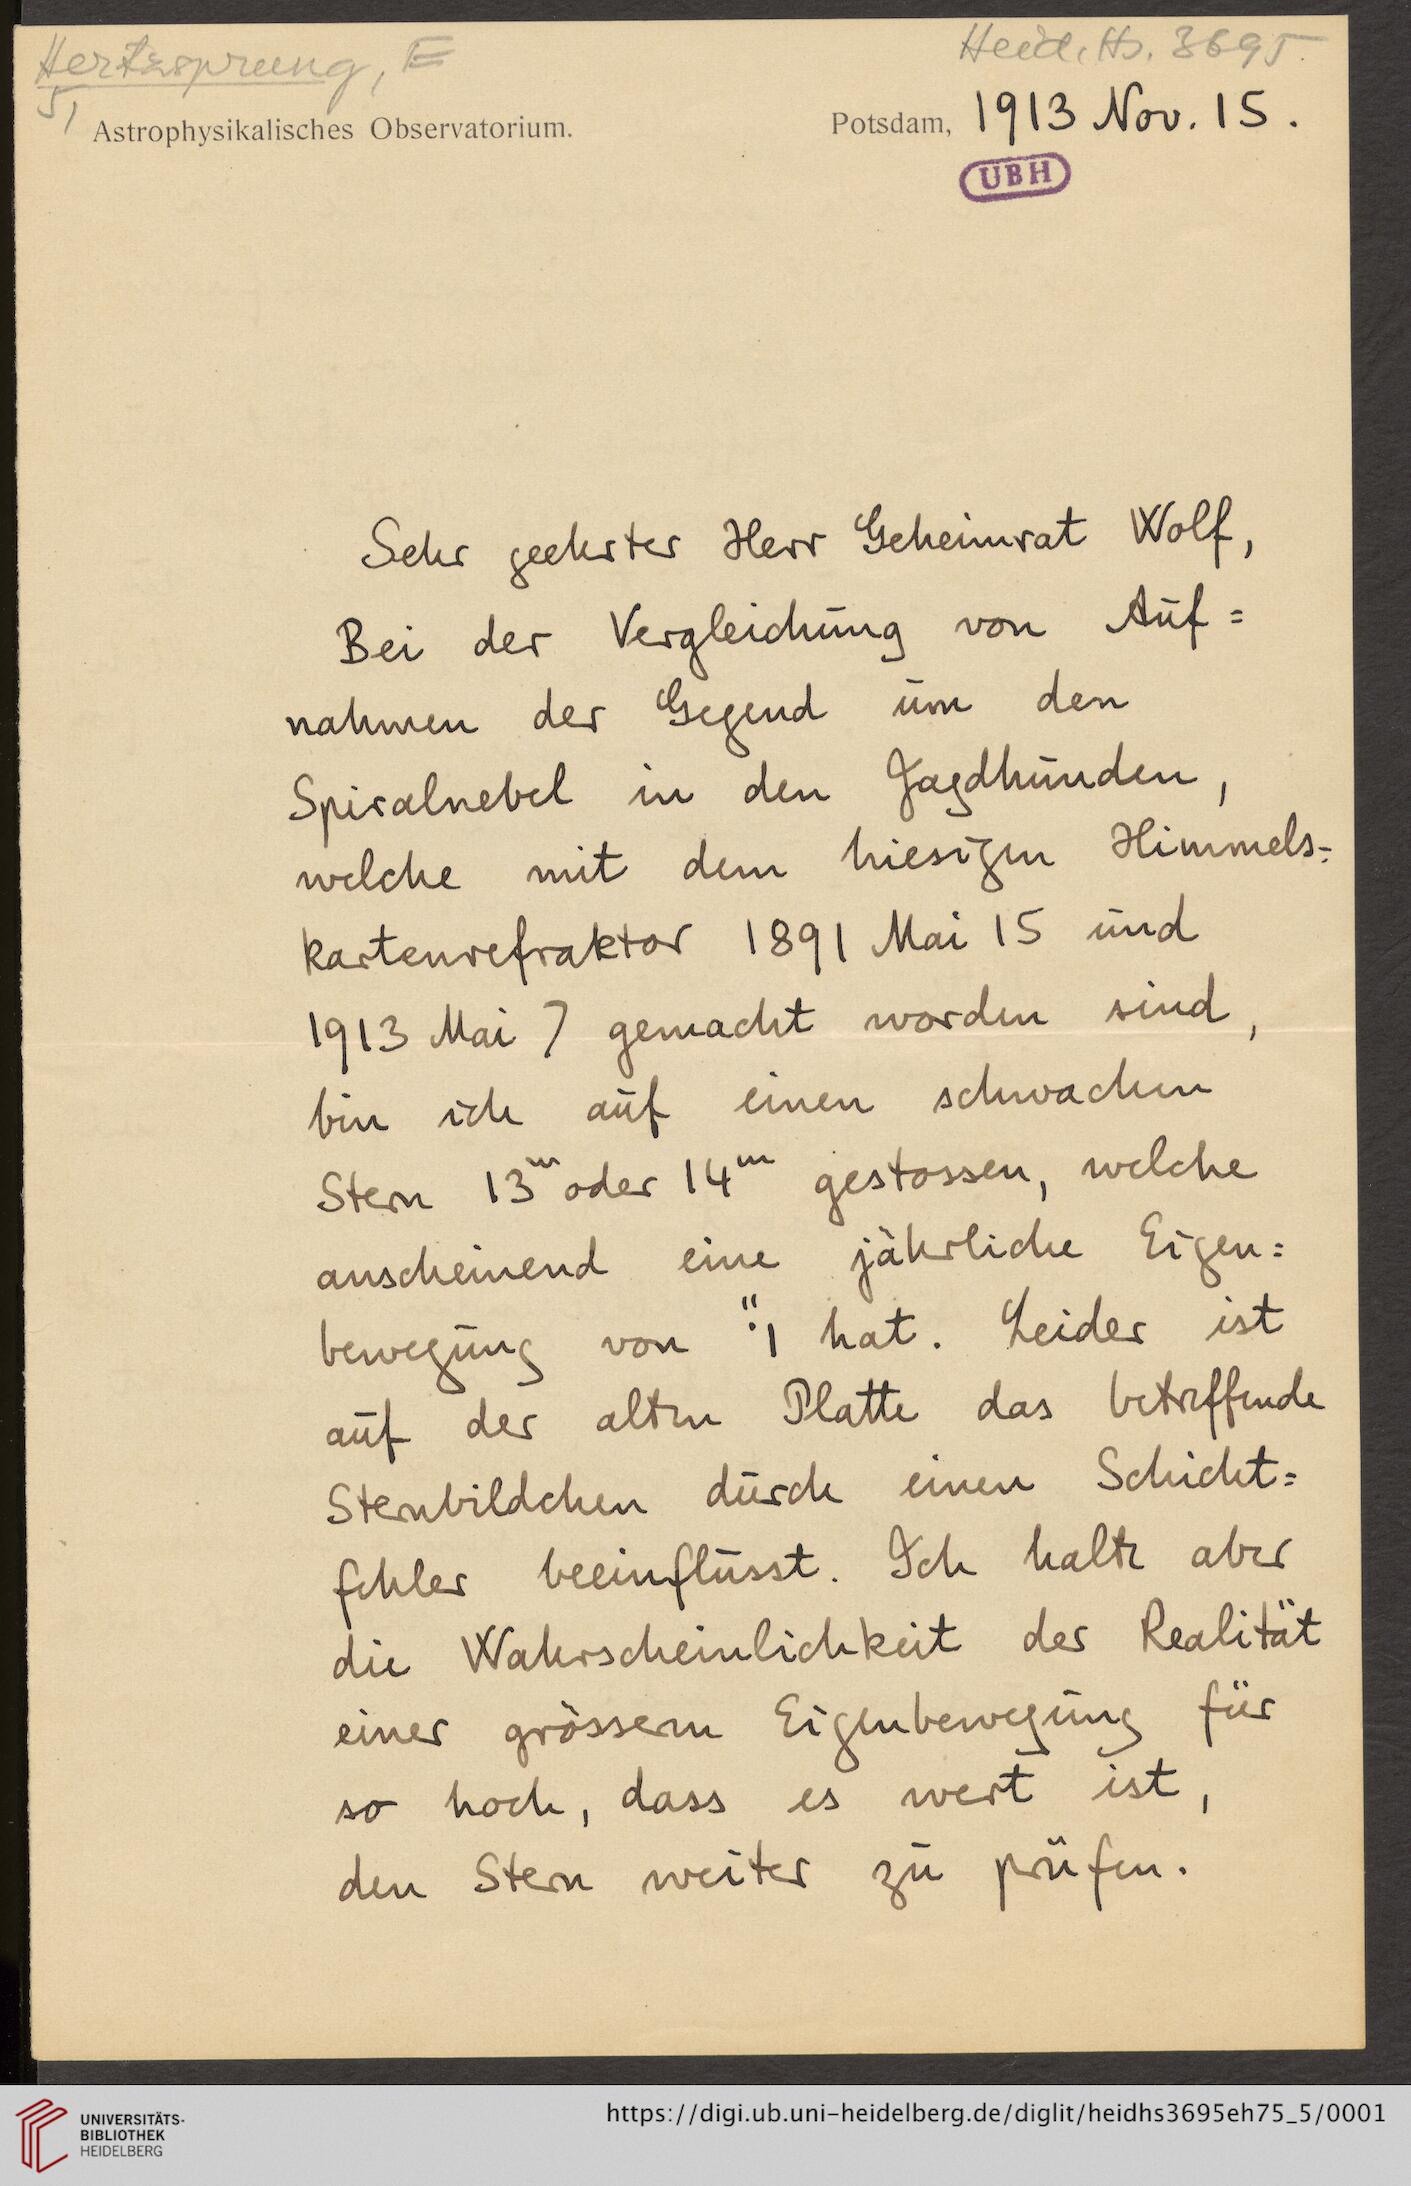 Hertzsprung, E
Heid. Hs. 3695
5,
Astrophysikalisches Observatorium.
Potsdam, 1913 Nov. 15.
UBH
Sehr geehrter Herr Geheimrat Wolf,
Bei der Vergleichung von Auf=
nahmen der Gegend um den
Spiralnebel in den Jagdhunden,
welche mit dem hiesigen Himmels=
kartenrefraktor 1891 Mai 15 und
1913 Mai 7 gemacht worden sind,
bin ich auf einen schwachen
Stern 13ᵐ oder 14ᵐ gestossen, welche
anscheinend eine jährliche Eigen=
bewegung von ".1 hat. Leider ist
auf der alten Platte das betreffende
Sternbildchen durch einen Schicht=
fehler beeinflusst. Ich halte aber
die Wahrscheinlichkeit der Realität
einer grössern Eigenbewegung für
so hoch, dass es wert ist,
den Stern weiter zu prüfen.
UNIVERSITÄTS-
BIBLIOTHEK
HEIDELBERG
https://digi.ub.uni-heidelberg.de/diglit/heidhs3695eh75_5/0001